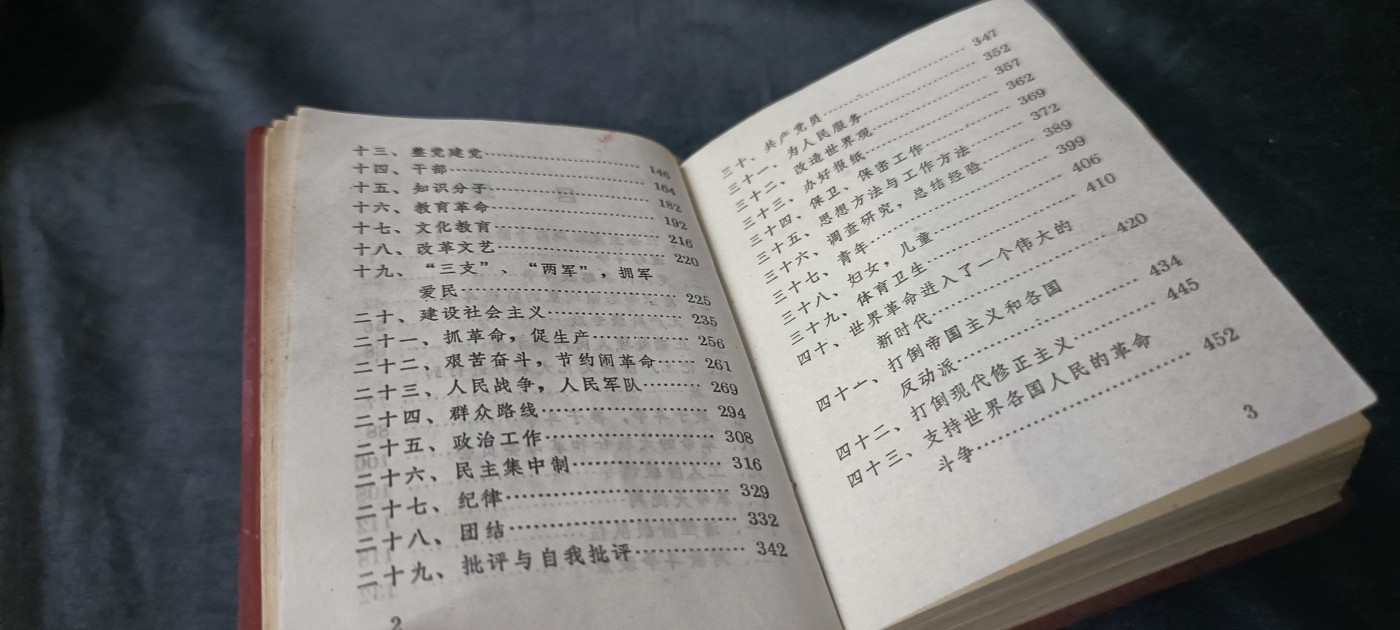 十三、整党建党……………………146
十四、干部……………………164
十五、知识分子……………………182
十六、教育革命……………………192
十七、文化教育……………………216
十八、改革文艺……………………220
十九、“三支”、“两军”，拥军
爱民……………………225
二十、建设社会主义……………………235
二十一、抓革命，促生产……………………256
二十二、艰苦奋斗，节约闹革命……261
二十三、人民战争，人民军队………269
二十四、群众路线……………………294
二十五、政治工作……………………308
二十六、民主集中制……………………316
二十七、纪律……………………329
二十八、团结……………………332
二十九、批评与自我批评……………342
2
三十、共产党员……………………347
三十一、为人民服务……………………352
三十二、改造世界观……………………357
三十三、办好报纸……………………362
三十四、保卫、保密工作……………………369
三十五、思想方法与工作方法……………372
三十六、调查研究，总结经验……………389
三十七、青年……………………399
三十八、妇女，儿童……………………406
三十九、体育卫生……………………410
四十、世界革命进入了一个伟大的
新时代……………………420
四十一、打倒帝国主义和各国
反动派……………………434
四十二、打倒现代修正主义……………445
四十三、支持世界各国人民的革命
斗争……………………452
3